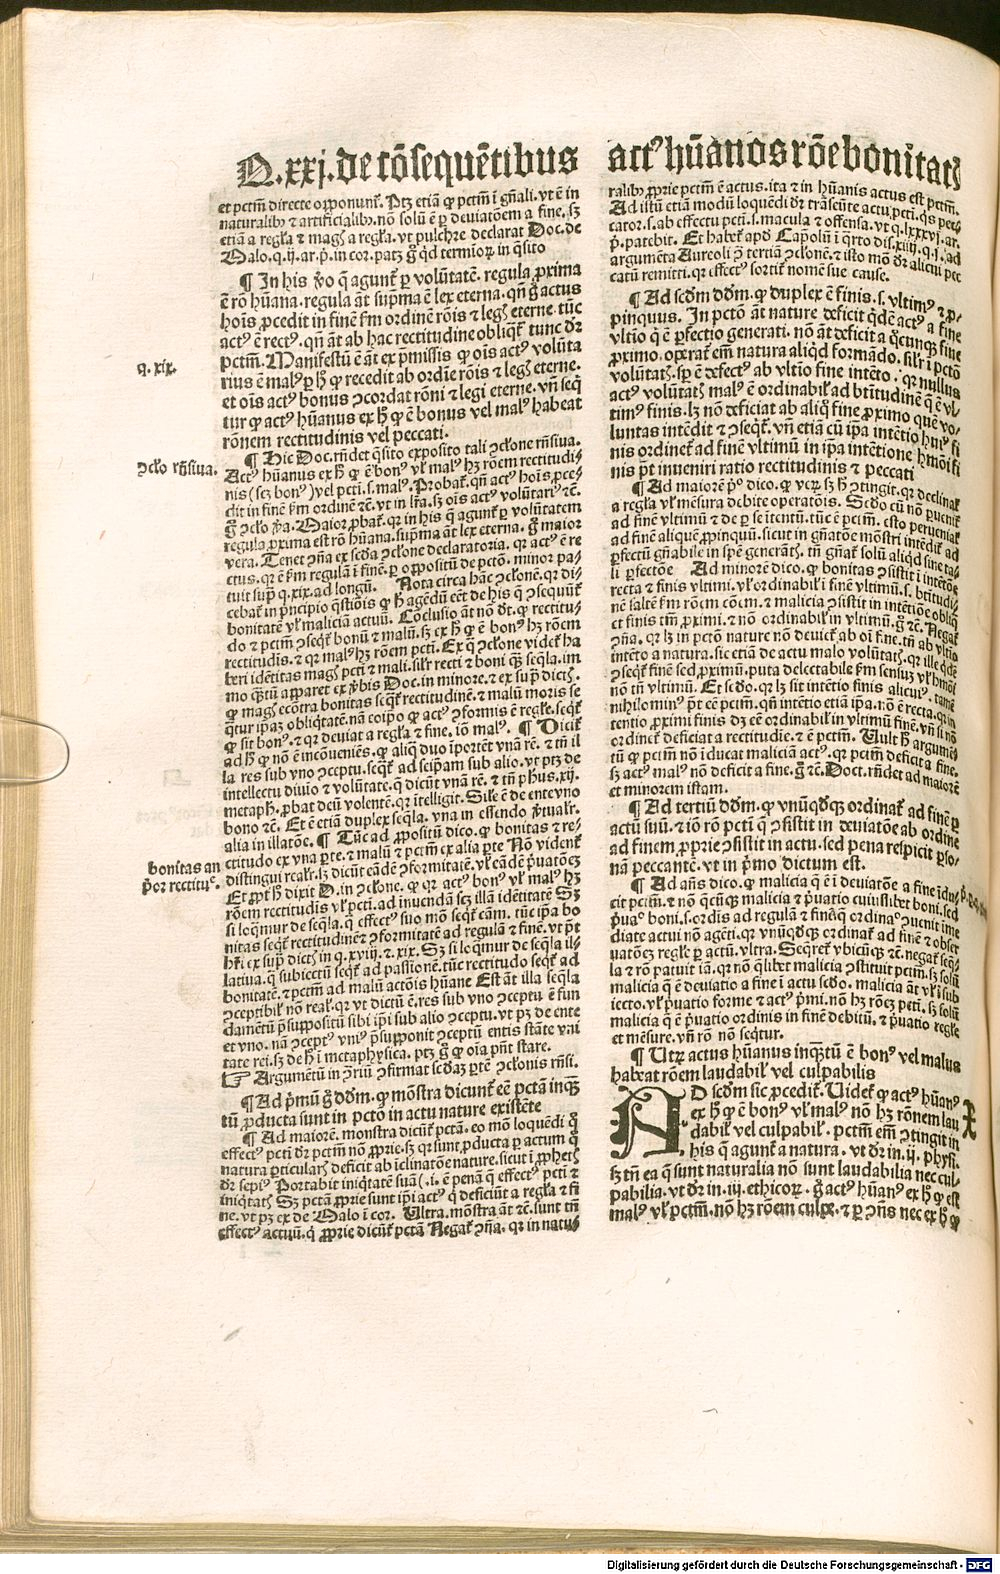 Q.xxj. de cōsequētibus actꝰ hūanos rōe bonitatꝭ
et pctm̄ directe opponunt̄. Ptꝫ etiā ꝙ pctm̄ ī gn̄ali. vt ē in
naturalibꝰ ⁊ artificialibꝰ. nō solū ē ꝑ deuiatōem a fine. sꝫ
etiā a regl̄a ⁊ magꝭ a regl̄a. vt pulchre declarat Doc. de
Malo. q.ij. ar.p̄. in cor. patꝫ g̊ qd termiorꝫ in q̄sito
¶ In his v̄o q̄ agunt̄ ꝑ volūtatē. regula ꝓxima
ē rō hūana. regula aūt supm̄a ē lex eterna. qn̄ g̊ actus
hoīs ꝓcedit in finē ẜm ordinē rōis ⁊ legꝭ eterne. tūc
actꝰ ē rectꝰ. qn̄ āt ab hac rectitudine obliqt̄ tunc dr̄
pctm̄. Manifestū ē āt ex p̄missis ꝙ oīs actꝰ volūta
rius ē malꝰ ꝑ h̊ ꝙ recedit ab ordīe rōis ⁊ legꝭ eterne.
et oīs actꝰ bonus ꝯcordat rōni ⁊ legi eterne. vn̄ seq̄
tur ꝙ actꝰ hūanus ex h̊ ꝙ ē bonus vel malꝰ habeat
rōnem rectitudinis vel peccati.
¶ Hic Doc. rn̄det q̄sito exposito tali ꝯclone rn̄siua.
Actꝰ hūanus ex h̊ ꝙ ē bonꝰ vl̄ malꝰ hꝫ rōem rectitudi-
nis (scꝫ bonꝰ) vel pcti. s. malꝰ. Probat̄. qn̄ actꝰ hoīs ꝓce-
dit in finē ẜm ordinē ⁊c. vt in lr̄a. sꝫ oīs actꝰ volūtariꝰ ⁊c.
g̊ ꝯclo v̄a. Maior ꝓbat̄. qr in his q̄ agunt̄ ꝑ volūtatem
regula ꝓxima est rō hūana. supm̄a āt lex eterna. g̊ maior
vera. Tenet ꝯn̄a ex scd̄a ꝯclone declaratoria. qr actꝰ ē re
ctus. qr ē ẜm regulā ī finē. ꝑ oppositū de pctō. minor pa-
tuit sup̄ q.xix. ad longū. Nota circa hāc ꝯclonē. qr di-
cebat̄ in p̄ncipio q̄stiōis ꝙ h̊ agēdū eēt de his q̄ ꝯsequūt̄
bonitatē vl̄ maliciā actuū. Cōclusio āt nō dt̄. ꝙ rectitu-
do ⁊ pctm̄ ꝯseqt̄ bonū ⁊ malū. sꝫ ex h̊ ꝙ ē bonꝰ hꝫ rōem
rectitudīs. ⁊ qr malꝰ hꝫ rōem pcti. Ex q̊ ꝯclone videt̄ ha
beri idētitas magꝭ pcti ⁊ mali. silr̄ recti ⁊ boni qꝫ seq̄la. im
mo q̄ꝫtū apparet ex v̄bis Doc. in minore. ⁊ ex sup̄ dictꝭ.
ꝙ magꝭ ecōtra bonitas seqt̄ rectitudinē. ⁊ malū moris se
qtur ipaꝫ obliq̄tatē. nā eoipo ꝙ actꝰ ꝯformis ē regl̄e. seqt̄
ꝙ sit bonꝰ. ⁊ qr deuiat a regl̄a ⁊ fine. iō malꝰ. ¶ Dicit̄
ad h̊ ꝙ nō ē incōueniēs. ꝙ aliq̄ duo īportēt vnā rē. ⁊ tn̄ il
la res sub vno ꝯceptu. seqt̄ ad seipam sub alio. vt ptꝫ de
intellectu diuio ⁊ volūtate. q̄ dicūt vnā rē. ⁊ tn̄ phūs. xij.
metaph. ꝓbat deū volentē. qr ītelligit. Sil̄e ē de ente vno
bono ⁊c. Et ē etiā duplex seq̄la. vna in essendo p̄tualr̄.
alia in illatōe. ¶ Tūc ad ꝓpositū dico. ꝙ bonitas ⁊ re-
ctitudo ex vna ꝑte. ⁊ malū ⁊ pctm̄ ex alia ꝑte Nō vident̄
distingui realr̄. sꝫ dicūt eādē ꝯformitatē. vl̄ eādē p̄uatōeꝫ
Et ꝓpt̄ h̊ dixit D. in ꝯclone. ꝙ qr actꝰ bonꝰ vl̄ malꝰ hꝫ
rōem rectitudis vl̄ pcti. ad inuendā scꝫ illā idētitatē Sꝫ
si loqmur de seq̄la. q̄ effectꝰ suo mō seqt̄ cām. tūc ip̄a bo
nitas seqt̄ rectitudinē ⁊ ꝯformitatē ad regulā ⁊ finē. vt pt̄
hr̄i ex sup̄ dictꝭ in q. xviij. ⁊ xix. Sꝫ si loqmur de seq̄la il-
latiua. q̄ subiectū seqt̄ ad passionē. tūc rectitudo seqt̄ ad
bonitatē. ⁊ pctm̄ ad malū actōis hūane Est āt illa seq̄la
ꝯceptibil̄ nō real̄. qr vt dictū ē. res sub vno ꝯceptu ē fun
damētū p̄suppositū sibi ip̄i sub alio ꝯceptu. vt pꝫ de ente
et vno. nā ꝯceptꝰ vniꝰ p̄supponit ꝯceptū entis stāte vni
tate rei. sꝫ de h̊ ī metaphysica. ptꝫ g̊ ꝙ oīa pn̄t stare.
☞ Argumētū in ꝯriū ꝯfirmat scd̄aꝫ ꝑtē ꝯclonis rn̄si.
¶ Ad p̄mū g̊ dd̄m. ꝙ mōstra dicunt̄ eē pctā inqꝫ
tū ꝓducta sunt in pctō in actu nature existēte
¶ Ad maiorē. monstra dicūt̄ pctā. eo mō loquēdi q̊
effectꝰ pcti dr̄ pctm̄ nō ꝓprie. sꝫ qr sunt ꝓducta ꝑ actum q̄
natura ꝑticularꝭ deficit ab īclinatōe nature. sicut ī ꝓphetꝭ
dr̄ sepiꝰ Portabit iniq̄tatē suā (.i. ē penā q̄ effectꝰ pcti ⁊
iniq̄tatꝭ Sꝫ pctā ꝓprie sunt ip̄i actꝰ q̄ deficiūt a regl̄a ⁊ fi
ne. vt pꝫ ex de Malo ī cor. Ultra. mōstra āt ⁊c. sunt tn̄
effectꝰ actuū. q̇ ꝓprie dicūt̄ pctā Negat̄ ꝯn̄a. qr in natu-
q. xix.
ꝯclo rn̄siua.
bonitas an
p̄or rectituꝰ.
ralibꝰ ꝓprie pctm̄ ē actus. ita ⁊ in hūanis actus est pctm̄.
Ad istū etiā modū loquēdi dr̄ trāseūte actu pcti. qs pec-
cator. s. ab effectu pcti. s. macula ⁊ offensa. vt q. lxxxvj. ar.
p̄. patebit. Et habet̄ apd̄ Cap̄olū ī q̄rto dis. xiiij. q. j. ad
argumēta Aureoli ꝯ̄ tertiā ꝯclonē. ⁊ isto mō dr̄ alicui pec
catū remitti. qr effectꝰ sortit̄ nomē sue cause.
¶ Ad scd̄m dd̄m. ꝙ duplex ē finis. s. vltimꝰ ⁊ ꝓ-
pinquus. In pctō āt nature deficit qd̄ē actꝰ a fine
vltīo q̄ ē ꝑfectio generati. nō āt deficit a q̊cūqꝫ fine
ꝓximo. operat̄ em̄ natura aliqd formādo. silr̄ ī pctō
volūtatꝭ. sp̄ ē defectꝰ ab vltīo fine intēto. qr nullus
actꝰ volūtatꝭ malꝰ ē ordinabil̄ ad btītudinē q̄ ē vl-
timꝰ finis. lꝫ nō deficiat ab aliq̊ fine ꝓximo quē vo-
luntas intēdit ⁊ ꝯseqt̄. vn̄ etiā cū ip̄a intētio huiꝰ fi
nis ordinet̄ ad finē vltimū in ip̄a intētione hmōi fi
nis pt̄ inueniri ratio rectitudinis ⁊ peccati
¶ Ad maiorē p̄o dico. ꝙ verꝫ sꝫ h̊ ꝯtingit. qr declinat̄
a regl̄a vl̄ mēsura debite operatōis. Scd̄o cū nō ꝑuenit̄
ad finē vltimū ⁊ de ꝑ se ītentū. tūc ē pctm̄. esto ꝑueniat̄
ad finē aliquē ꝓpinquū. sicut in gn̄atōe mōstri intēdit̄ ad
ꝑfectū gn̄abile in spē generatꝭ. tn̄ gn̄at̄ solū aliqd sine ta-
li ꝑfectōe Ad minorē dico. ꝙ bonitas ꝯsistit ī intētōe
recta ⁊ finis vltimi. vl̄ ordinabil̄ ī finē vltimū. s. btītudi-
nē saltē ẜm rōem cōem. ⁊ malicia ꝯsistit in intētiōe obliq̄
et finis tm̄ ꝓximi. ⁊ nō ordinabil̄ in vltimū. g̊ ⁊c. Negat̄
ꝯn̄a. qr lꝫ in pctō nature nō deuiet̄ ab oī fine. tn̄ ab vltīo
intēto a natura. sic etiā de actu malo volūtatꝭ. qr ille qd̄ē
ꝯseqt̄ finē sed ꝓximū. puta delectabile ẜm sensuꝫ vl̄ hmōi
nō tn̄ vltimū. Et scd̄o. qr lꝫ sit intētio finis alicuiꝰ. tamē
nihilo minꝰ pt̄ eē pctm̄. qn̄ intētio etiā ip̄a. nō ē recta. qr in
tentio ꝓximi finis dꝫ eē ordinabil̄ in vltimū finē. vn̄ si nō
ordinet̄ deficiat a rectitudīe. ⁊ ē pctm̄. Uult h̊ argumē
tū ꝙ pctm̄ nō īducat maliciā actꝰ. qr pctm̄ deficit a fine.
sꝫ actꝰ malꝰ nō deficit a fine. g̊ ⁊c. Doct. rn̄det ad maiorē
et minorem istam.
¶ Ad tertiū dd̄m. ꝙ vnūqd̄qꝫ ordinat̄ ad finē ꝑ
actū suū. ⁊ iō rō pcti q̄ ꝯsistit in deuiatōe ab ordine
ad finem ꝓprie ꝯsistit in actu. sed pena respicit ꝑso-
nā peccantē. vt in p̄mo dictum est.
¶ Ad an̄s dico. ꝙ malicia q̄ ē ī deuiatōe a fine īdu-
cit pctm̄. ⁊ nō q̄cūqꝫ malicia ⁊ p̄uatio cuiuslibet boni. sed
p̄uaꝰ boni. s. ordīs ad regulā ⁊ finē. q̄ ordinaꝰ ꝯuenit ime
diate actui nō agēti. qr vnūqd̄qꝫ ordinat̄ ad finē ⁊ obser
uatōeꝫ regl̄e ꝑ actū. vltra. Seqret̄ vbicūqꝫ ⁊c. negat̄ seq̄-
la ⁊ rō patuit iā. qr nō q̄libet malicia ꝯstituit pctm̄. sꝫ solū
malicia q̄ ē deuiatio a fine ī actu scd̄o. malicia āt vl̄ ī sub
iecto. vl̄ p̄uatio forme ⁊ actꝰ p̄mi. nō hꝫ rōeꝫ pcti. sꝫ solū
malicia q̄ ē p̄uatio ordinis in finē debitū. ⁊ p̄uatio regl̄e
et mēsure. vn̄ rō nō seqtur.
¶ Utrꝫ actus hūanus inqꝫtū ē bonꝰ vel malus
habeat rōem laudabil̄ vel culpabilis
AD scd̄m sic ꝓcedit̄. Uidet̄ ꝙ actꝰ hūanꝰ
ex h̊ ꝙ ē bonꝰ vl̄ malꝰ nō hꝫ rōnem lau
dabil̄ vel culpabil̄. pctm̄ em̄ ꝯtingit in
his q̄ agunt̄ a natura. vt dr̄ in. ij. physi.
sꝫ tn̄ ea q̄ sunt naturalia nō sunt laudabilia nec cul-
pabilia. vt dr̄ in. iij. ethicorꝫ. g̊ actꝰ hūanꝰ ex h̊ ꝙ est
malꝰ vl̄ pctm̄. nō hꝫ rōem culpe. ⁊ ꝑ ꝯn̄s nec ex h̊ ꝙ
Digitalisierung gefördert durch die Deutsche Forschungsgemeinschaft - DFG